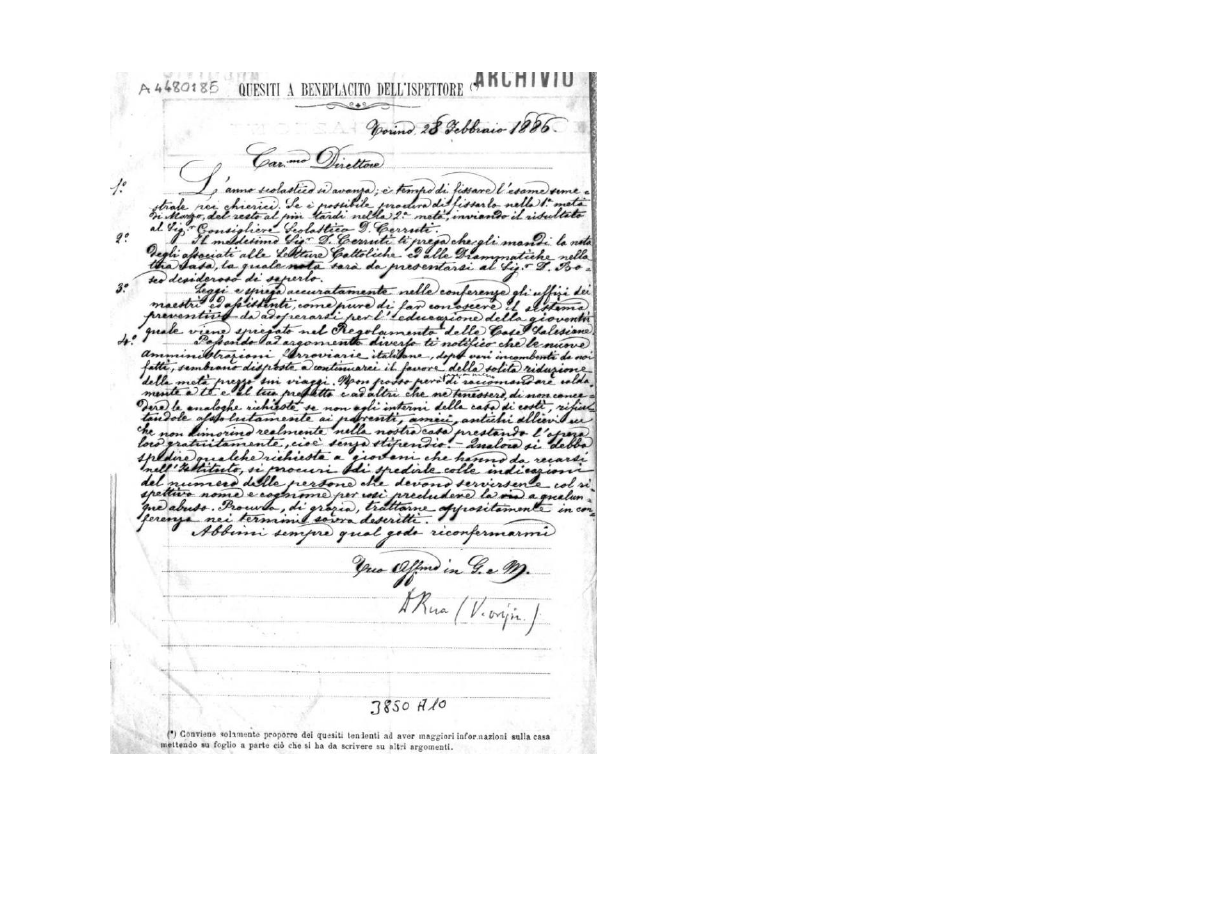 ARCHIVIO
A4480185 QUESITI A BENEPLACITO DELL'ISPETTORE (*)
Torino 28 Febbraio 1886.
Car.mo Direttore
1º. L'anno scolastico si avanza; è tempo di fissare l'esame seme=
strale pei chierici. Se è possibile procura di fissarlo nella 1ª metà
di Marzo, del resto al più tardi nella 2ª metà, inviando il risultato
al Sig.r Consigliere Scolastico D. Cerruti.
2º. Il medesimo Sig.r D. Cerruti ti prega che gli mandi la nota
degli associati alle Letture Cattoliche ed alle Drammatiche nella
tua casa, la quale nota sarà da presentarsi al Sig.r D. Bo=
sco desideroso di saperlo.
3º. Leggi e spiega accuratamente nelle conferenze gli uffizi dei
maestri ed assistenti, come pure di far conoscere il sistema
preventivo da adoperarsi per l'educazione della gioventù
quale viene spiegato nel Regolamento delle Case Salesiane
4º. Passando ad argomento diverso ti notifico che le nuove
Amministrazioni Ferroviarie italiane, dopo vari incombenti da noi
fatti, sembrano disposte a continuarci il favore della solita riduzione
della metà prezzo sui viaggi. Non posso però di raccomandare calda=
mente a te e al tuo prefetto e ad altri che ne tenessero, di non conce=
dere le analoghe richieste se non agli interni della casa di costì, rifiu=
tandole assolutamente ai parenti, amici, antichi allievi
che non dimorino realmente nella nostra casa prestando l'opera
loro gratuitamente, cioè senza stipendio. – Qualora si debba
spedire qualche richiesta a giovani che hanno da recarsi
nell'Istituto, si procuri di spedirle colle indicazioni
del numero delle persone che devono servirsene col ri=
spettivo nome e cognome per così precludere la via a qualun=
que abuso. Procura, di grazia, trattarne appositamente in con=
ferenza nei termini sovra descritti.
Abbimi sempre qual godo riconfermarmi
Tuo Aff.mo in G. e M.
D Rua (V. orig.)
3850 A10
(*) Conviene solamente proporre dei quesiti tendenti ad aver maggiori informazioni sulla casa
mettendo su foglio a parte ciò che si ha da scrivere su altri argomenti.